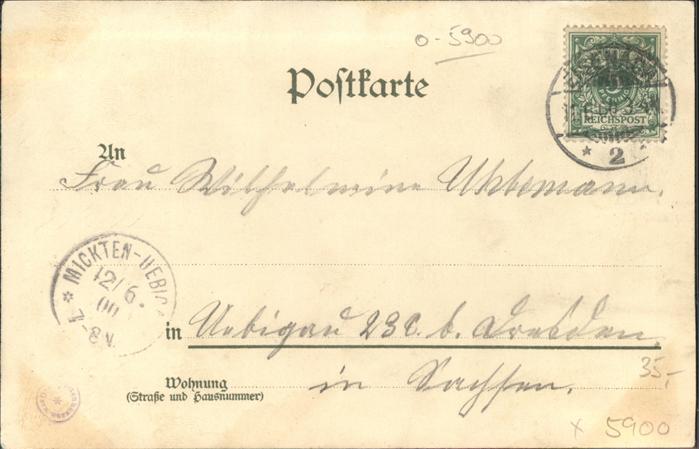 0-5900
Postkarte
REICHSPOST
* 2
An
Frau Wilhelmine Uhlemann.
* MICKTEN-UEBIG
12/6.
00
7-8V.
in Uebigau 23c. b. Dresden.
35,-
Wohnung
in Sachsen.
(Straße und Hausnummer)
x 5900